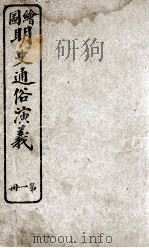 繪圖
明史通俗演義
第一冊
mtoou.info